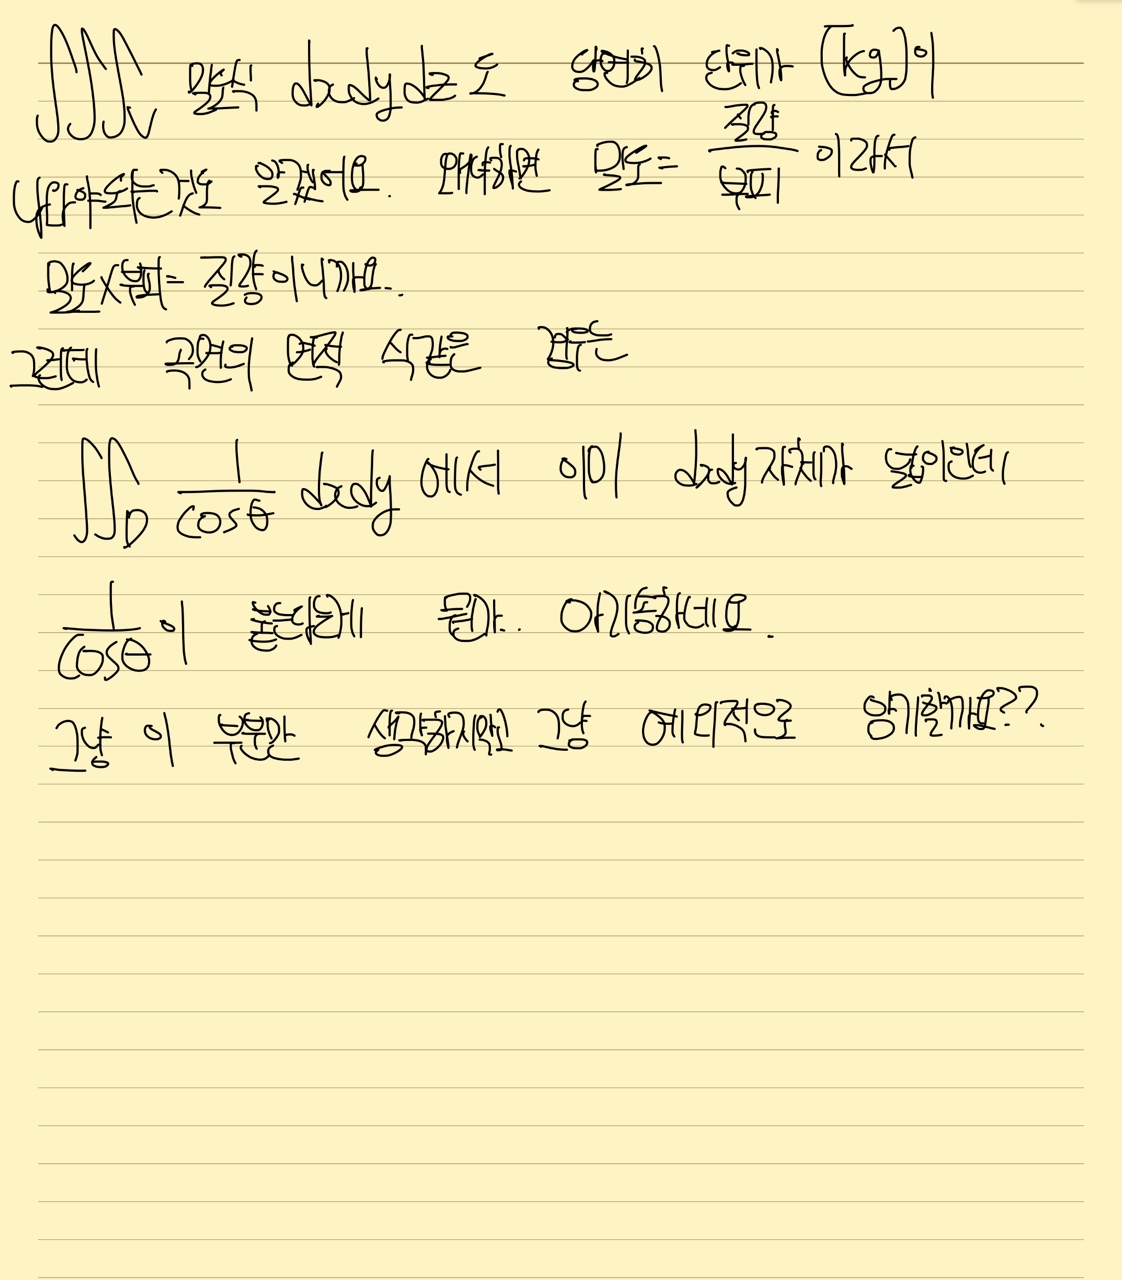 ∭_V 밀도식 dxdydz도 당연히 단위가 [kg]이
나와야되는것도 알겠어요. 왜냐하면 밀도= 질량/부피 이라서
밀도×부피= 질량이니까요..
그런데 곡면의 면적 식같은 경우는
∬_D 1/cosθ dxdy 에서 이미 dxdy자체가 넓이인데
1/cosθ이 붙는다는게 뭔가.. 아리송하네요.
그냥 이 부분만 생각하지않고 그냥 예외적으로 암기할까요??.